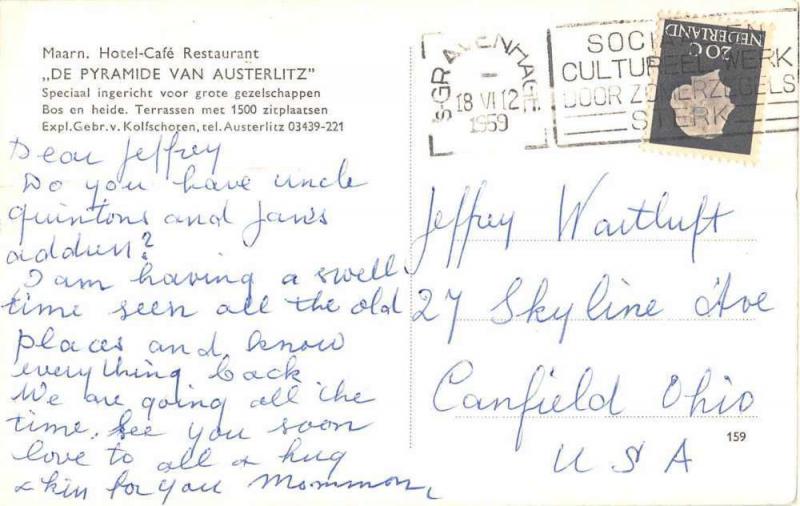 Maarn. Hotel-Café Restaurant
„DE PYRAMIDE VAN AUSTERLITZ”
Speciaal ingericht voor grote gezelschappen
Bos en heide. Terrassen met 1500 zitplaatsen
Expl. Gebr. v. Kolfschoten, tel. Austerlitz 03439-221
Dear Jeffrey
Do you have uncle
quintons and Jan's
address?
I am having a swell
time seen all the old
places and know
everything back
We are going all the
time. See you soon
love to all & hug
& kiss for you Mommon,
's-GRAVENHAGE
18 VI 12
1959
CULTUREEL WERK
DOOR ZOMERZEGELS
STERK
20 C
NEDERLAND
Jeffrey Waitluft
27 Skyline Ave
Canfield Ohio
USA
159